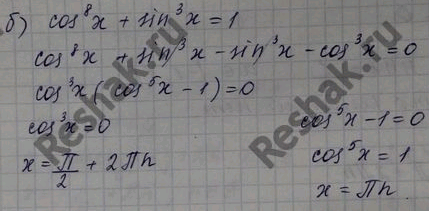 б) cos⁸x + sin³x = 1
cos⁸x + sin³x - sin³x - cos³x = 0
cos³x (cos⁵x - 1) = 0
cos³x = 0 cos⁵x - 1 = 0
x = π/2 + 2πn cos⁵x = 1
x = πn
Reshak.ru
Reshak.ru